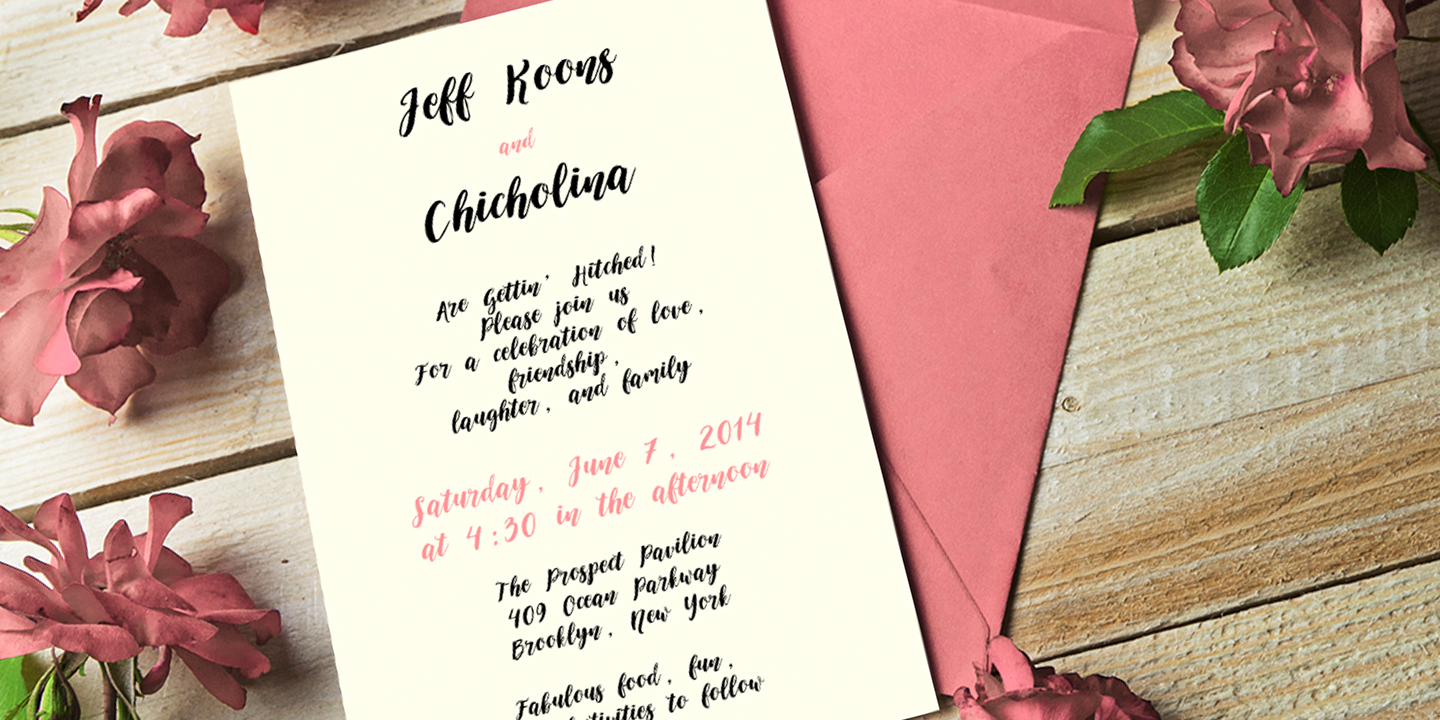 Jeff Koons
and
Chicholina
Are Gettin' Hitched!
Please join us
For a celebration of love,
friendship,
laughter, and family
Saturday, June 7, 2014
at 4:30 in the afternoon
The Prospect Pavilion
409 Ocean Parkway
Brooklyn, New York
Fabulous food, fun,
to follow